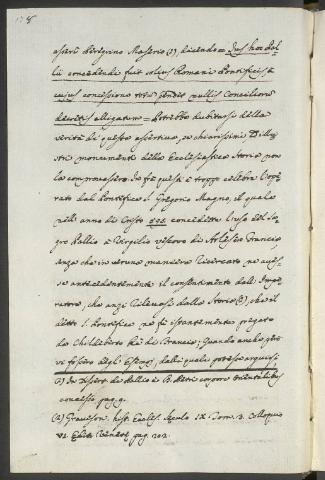 asserì Peregrino Maserio (1), dicendo = Jus hoc Pal-
lii concedendi fuit solius Romani Pontificis, a
cujus concessione totum pendet nullis Conciliorum
decretis alligatum = Potrebbe dubitarsi della
verità di questo assertivo, se chiarissimi, ed illu-
stri monumenti della Ecclesiastica Storia non
lo comprovassero. In fra questi è troppo celebre l'ope-
rato dal Pontefice S. Gregorio Magno, il quale
nell' anno di Cristo 595. concedette l'uso del Sa-
gro Pallio a Virgilio vescovo di Arles in Francia,
senza che in veruna maniera ricercato ne aves-
se antecedentemente il consentimento dall' Impe-
ratore, che anzi rilevasi dalla Storia (2), che il
detto S. Pontefice ne fù istantemente pregato
da Childeberto Rè di Francia; Quando anche
vi fossero degli Esempj, dalli quali potesse arguirsi,
(1) In Dissert. de Pallio in B. Petri corpore
pag. 9.
(2) Graveson. hist. Eccles. Saeculo IX. Tom. 3. Colloquio
VI. Edit. Venetae pag. 202.